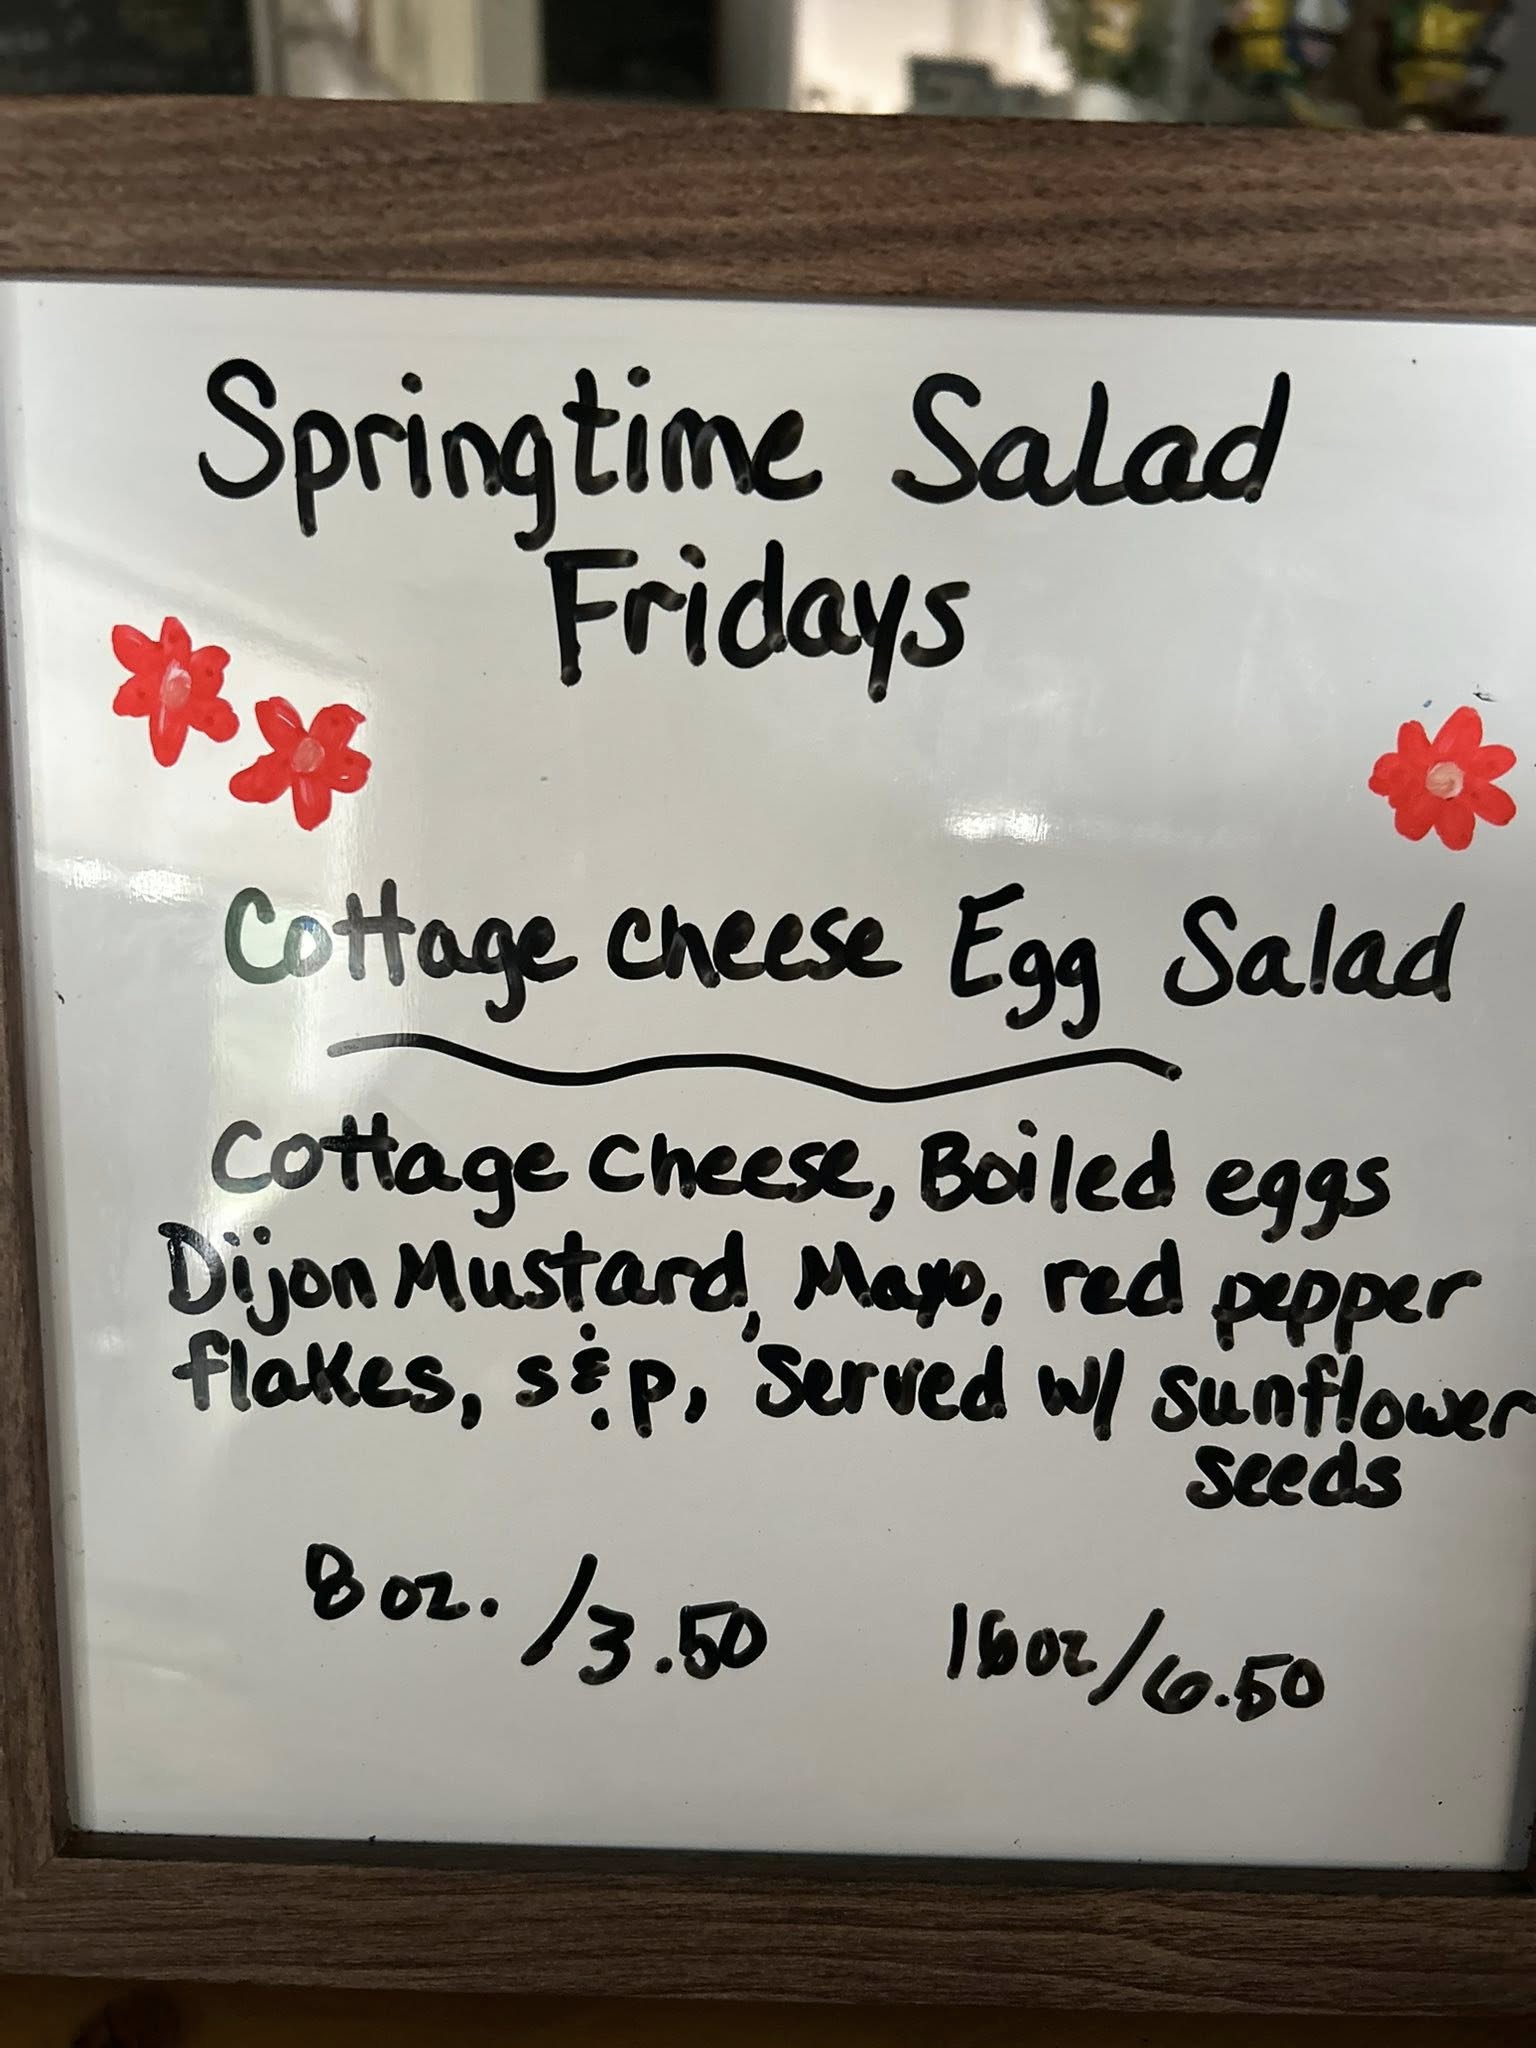 Springtime Salad
Fridays
Cottage cheese Egg Salad
Cottage cheese, Boiled eggs
Dijon Mustard, Mayo, red pepper
flakes, s & p, Served w/ sunflower
seeds
8 oz. / 3.50 16 oz / 6.50